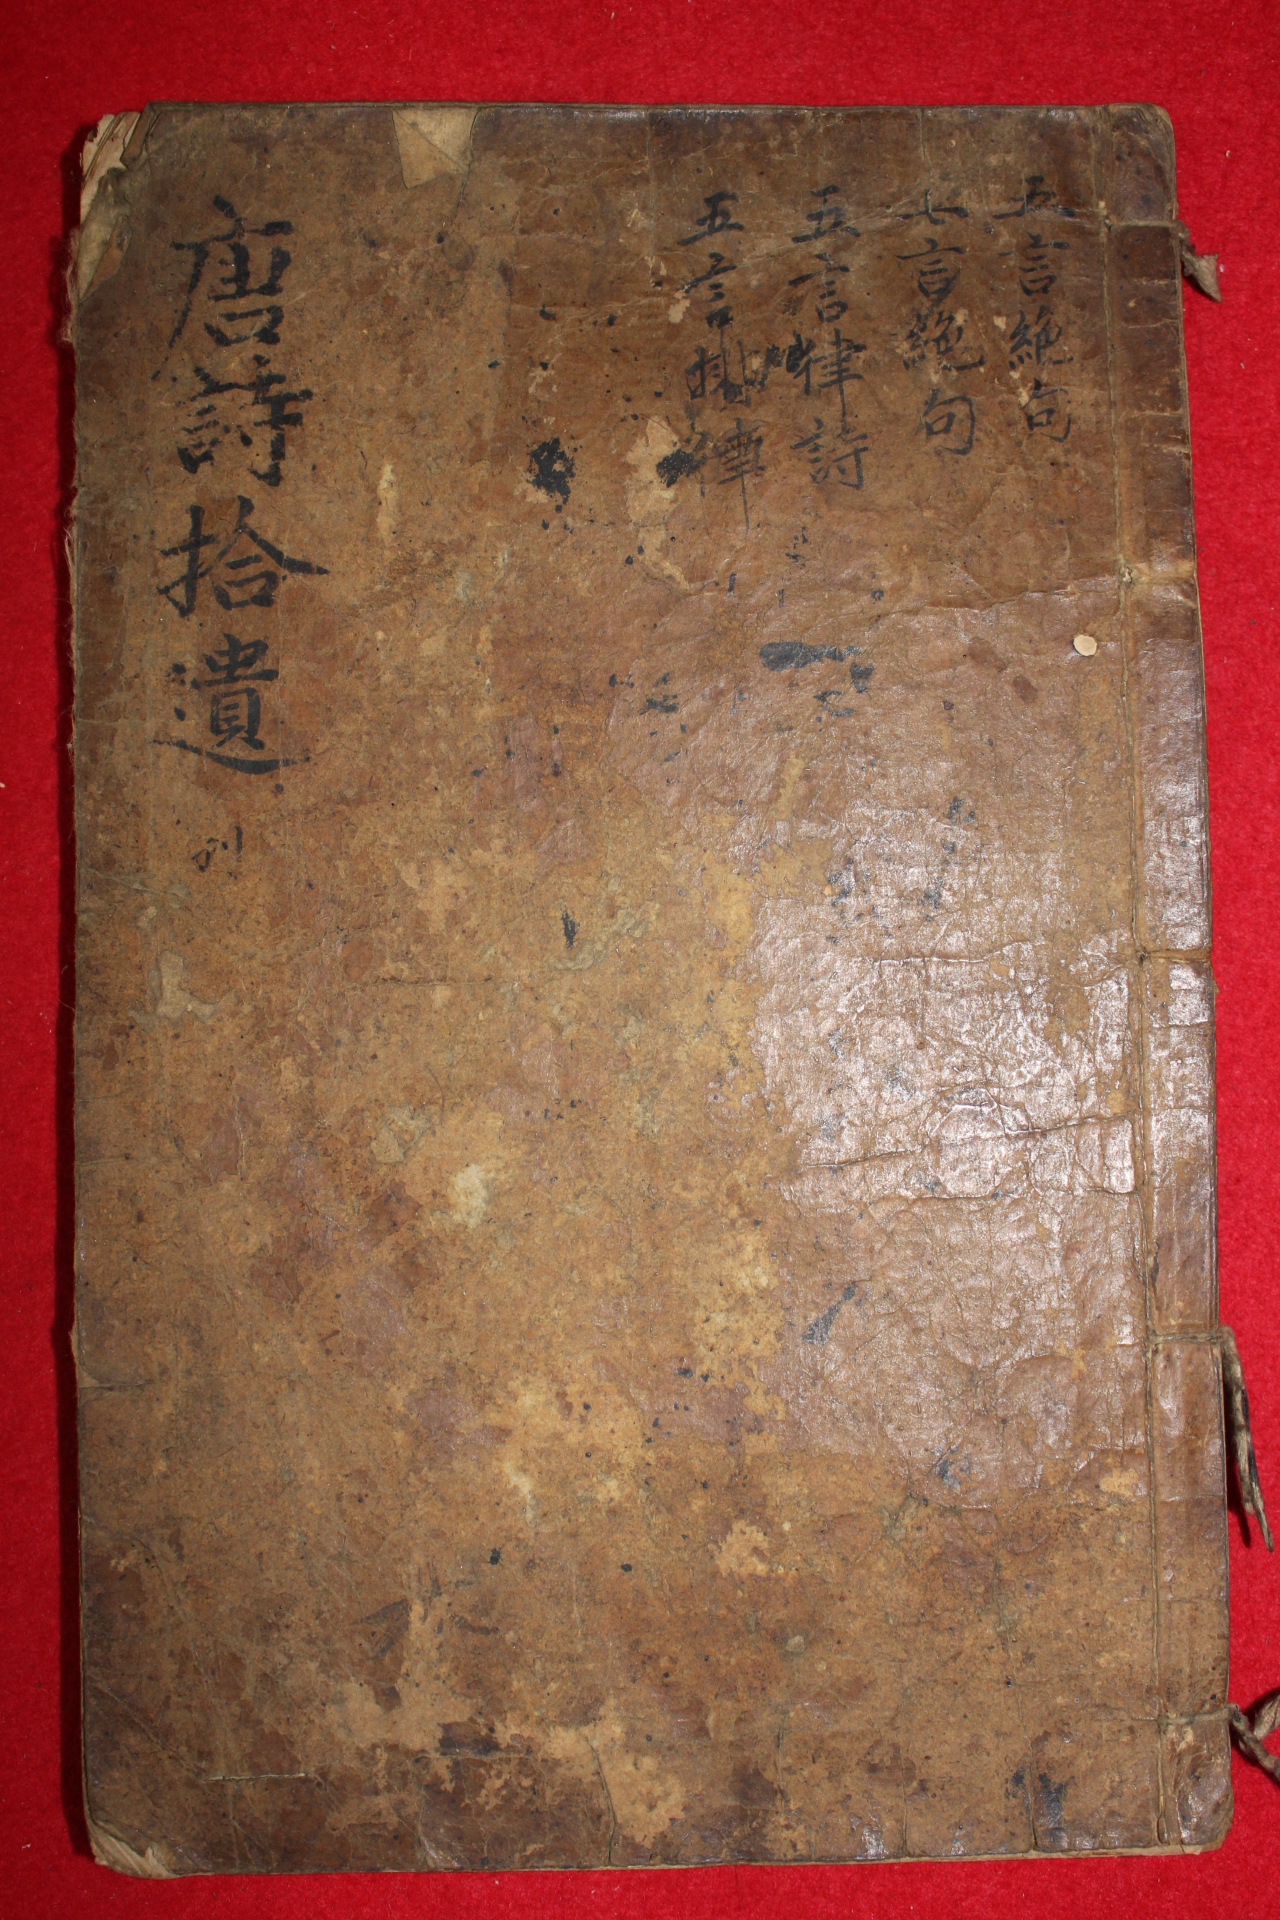 五言絶句
七言絶句
五言律詩
五言排律
唐詩拾遺